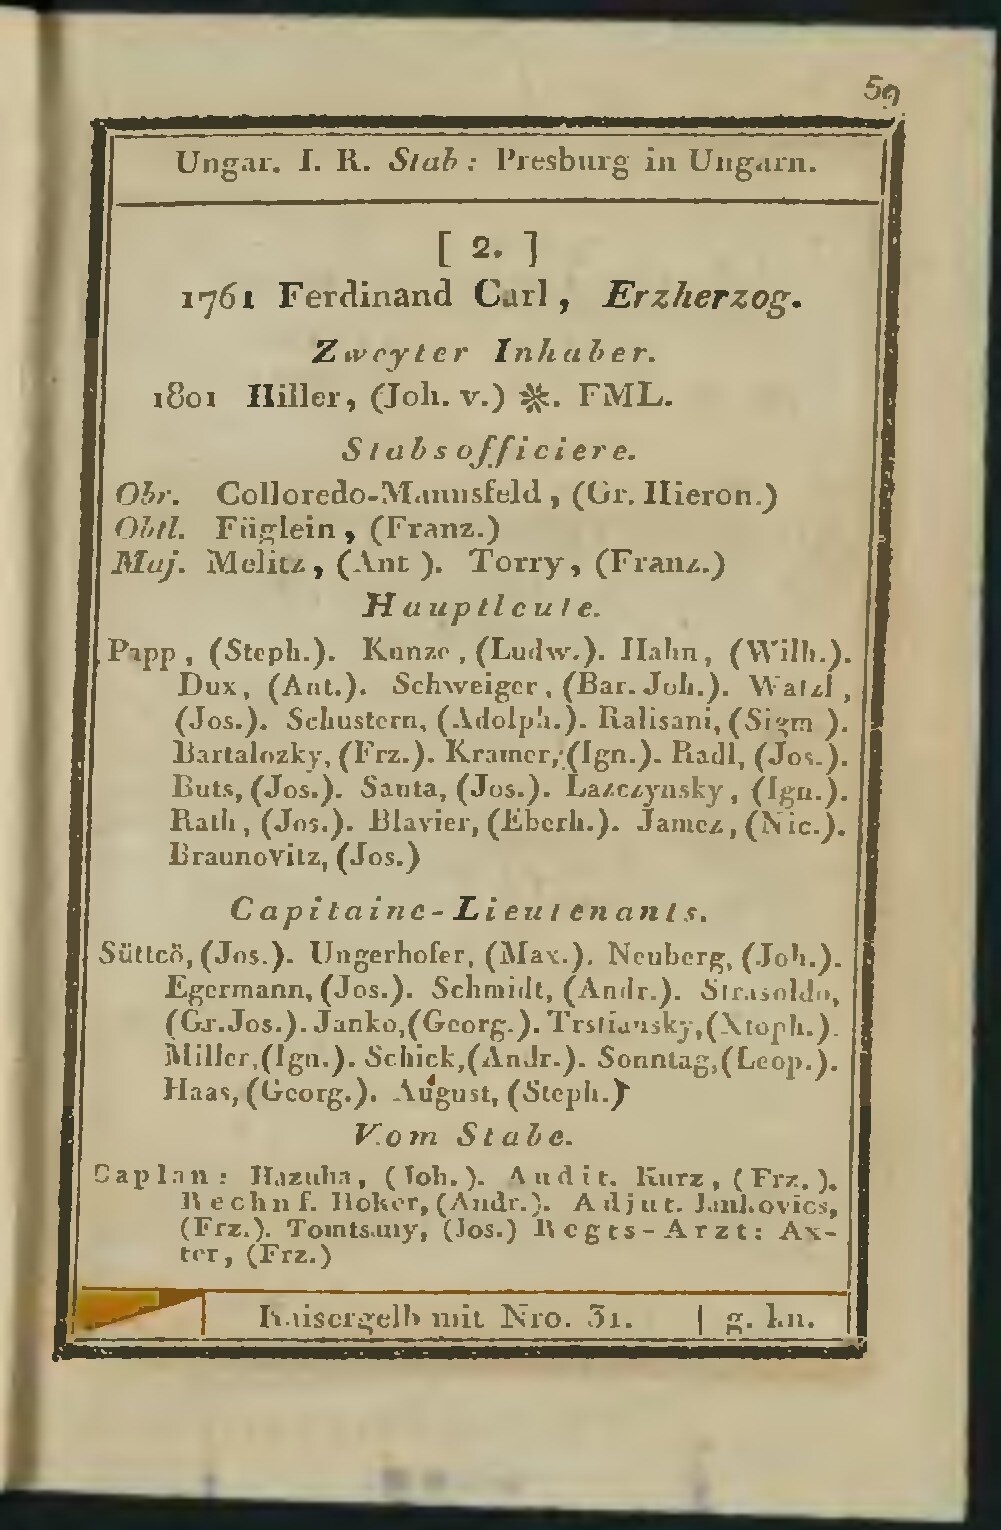 59
Ungar. I. R. Stab: Presburg in Ungarn.
[ 2. ]
1761 Ferdinand Carl, Erzherzog.
Zweyter Inhaber.
1801 Hiller, (Joh. v.) ※. FML.
Stabsofficiere.
Obr. Colloredo-Mannsfeld, (Gr. Hieron.)
Obtl. Füglein, (Franz.)
Maj. Melitz, (Ant ). Torry, (Franz.)
Hauptleute.
Papp, (Steph.). Kunze, (Ludw.). Hahn, (Wilh.).
Dux, (Ant.). Schweiger, (Bar. Joh.). Watzl,
(Jos.). Schustern, (Adolph.). Ralisani, (Sigm ).
Bartalozky, (Frz.). Kramer, (Ign.). Radl, (Jos.).
Buts, (Jos.). Santa, (Jos.). Lazczynsky, (Ign.).
Rath, (Jos.). Blavier, (Eberh.). Jamez, (Nic.).
Braunovitz, (Jos.)
Capitaine-Lieutenants.
Süttcö, (Jos.). Ungerhofer, (Max.). Neuberg, (Joh.).
Egermann, (Jos.). Schmidt, (Andr.). Strasoldo,
(Gr. Jos.). Janko, (Georg.). Trstiansky, (Xtoph.).
Miller, (Ign.). Schick, (Andr.). Sonntag, (Leop.).
Haas, (Georg.). August, (Steph.)
Vom Stabe.
Caplan: Hazuha, (Joh.). Audit. Kurz, (Frz.).
Rechnf. Hoker, (Andr.). Adjut. Jankovics,
(Frz.). Tomtsany, (Jos.) Regts-Arzt: Ax-
ter, (Frz.)
Kaisergelb mit Nro. 31. | g. kn.